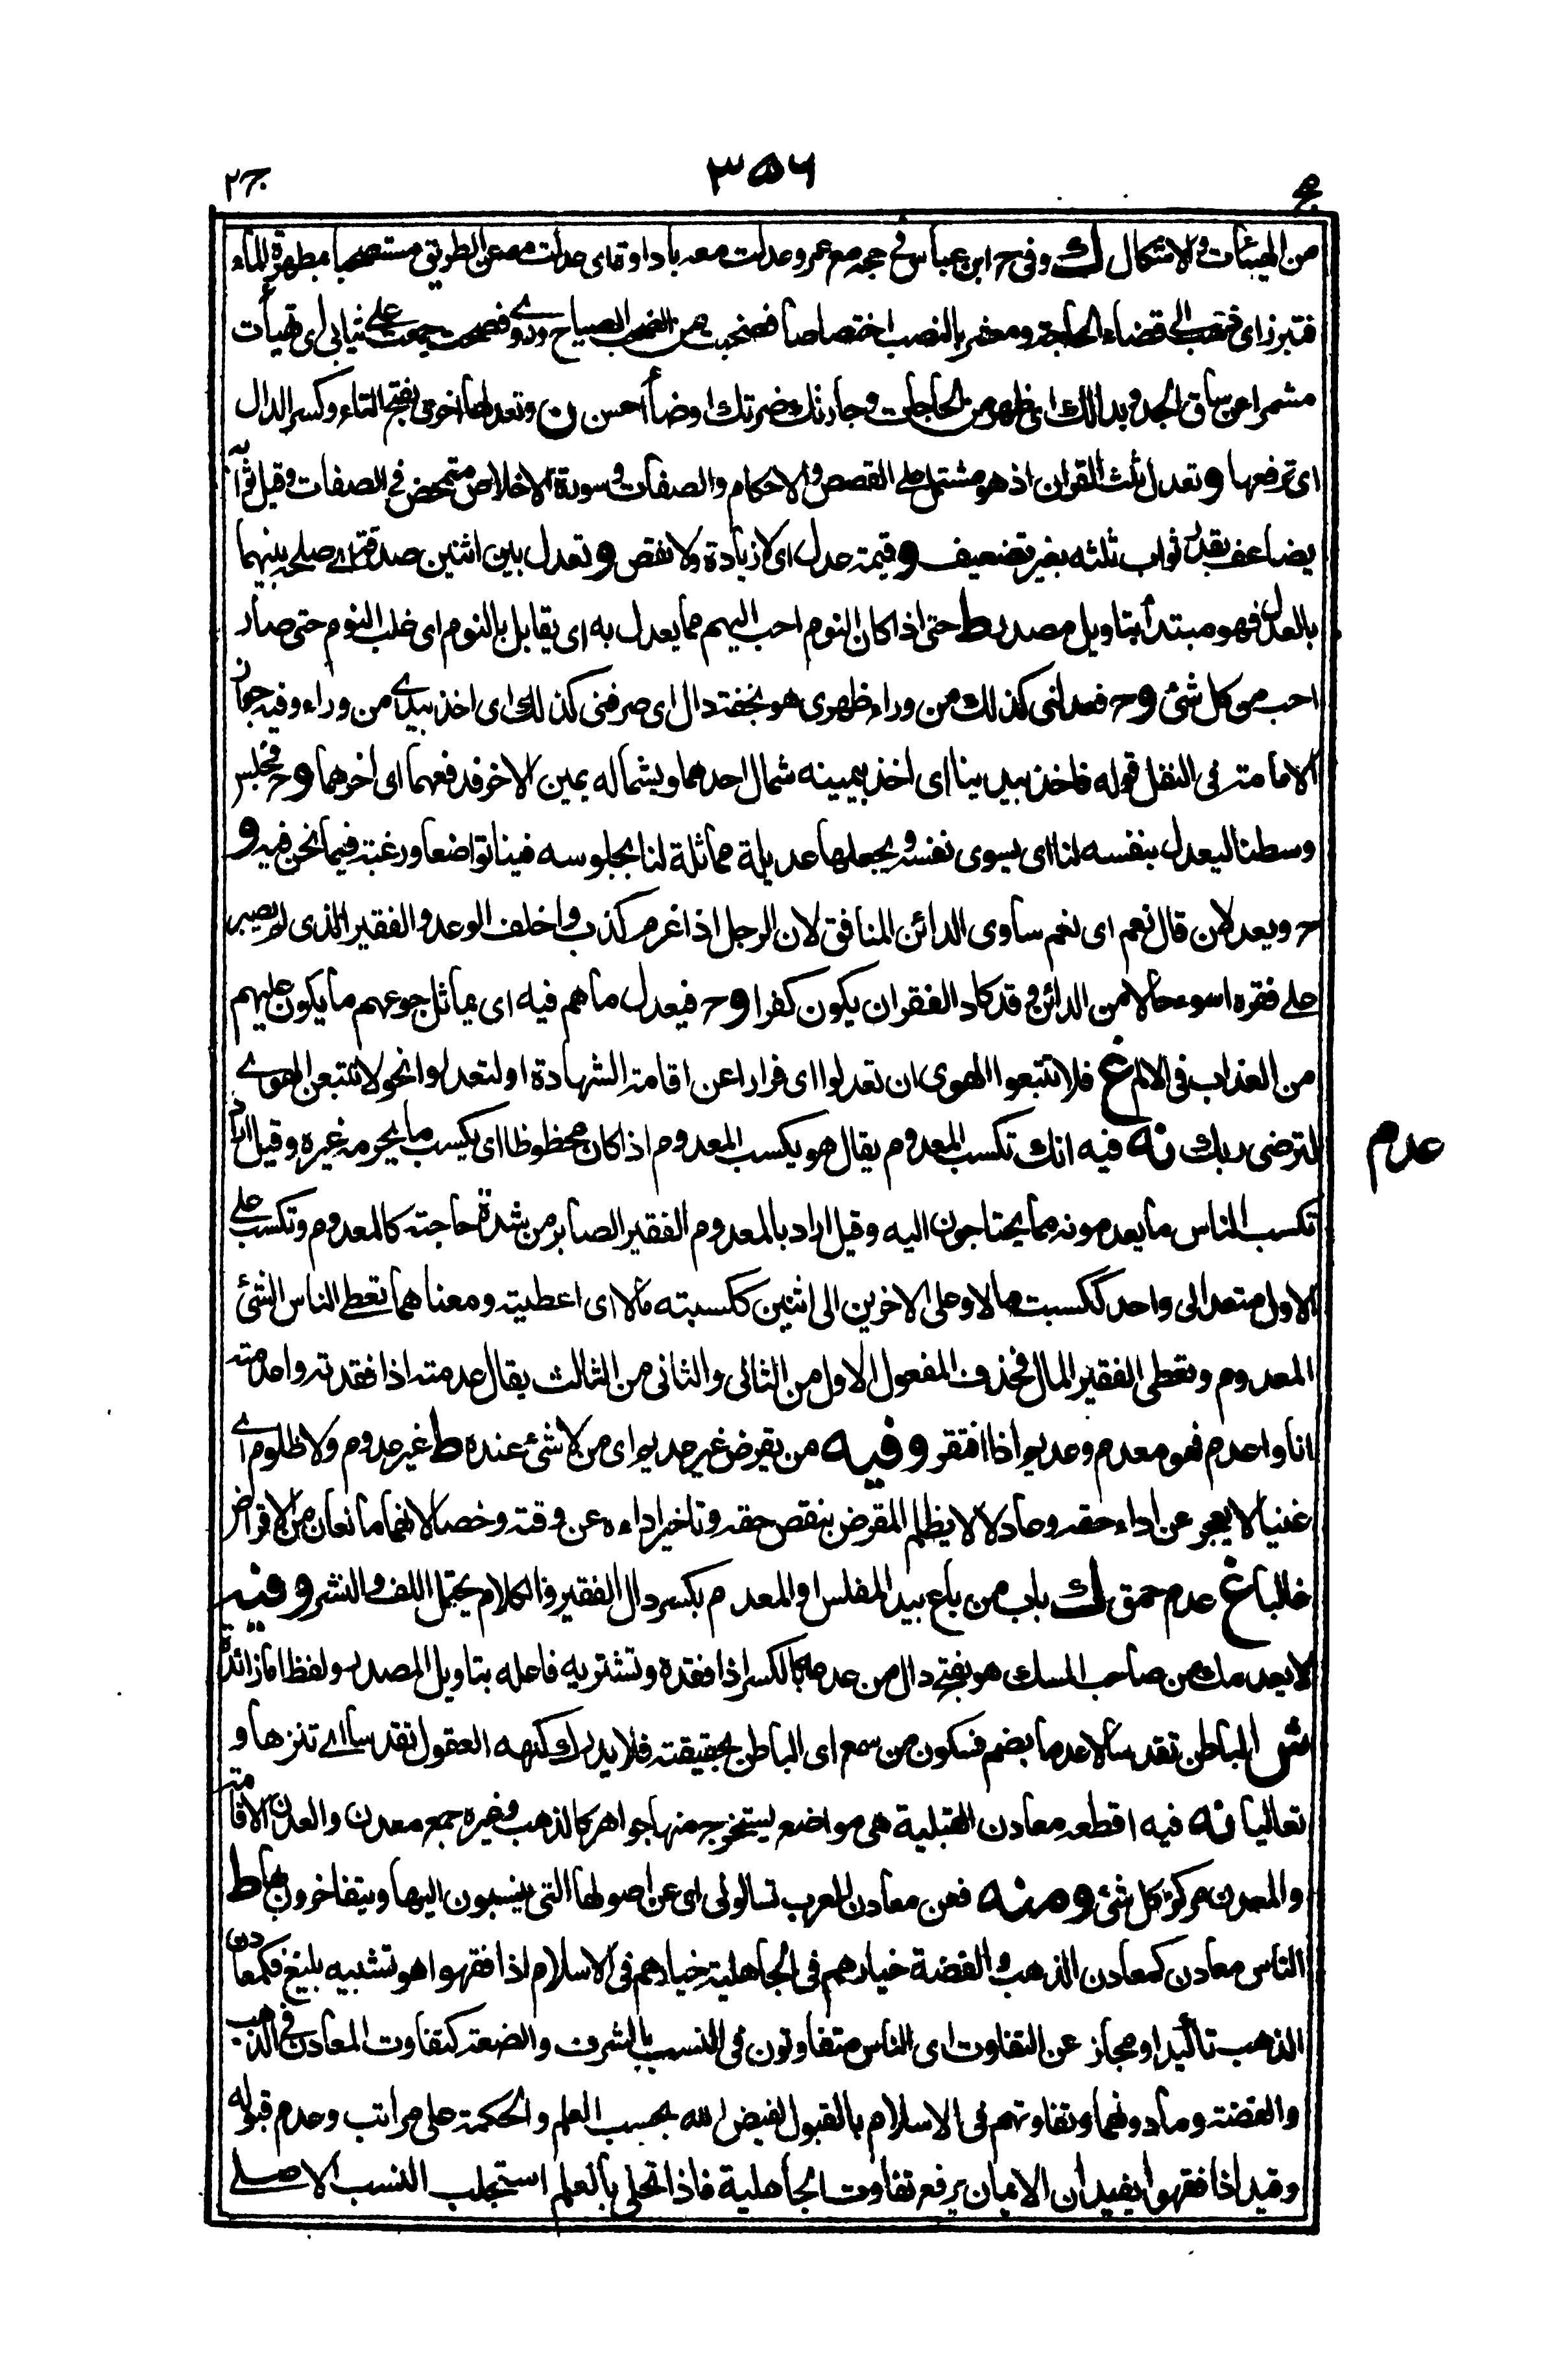 مج ٣٥٦ ج٢
من الهيئات والاشكال ك وفى ح ابن عباس فى حجه مع عمر وعدلت معه باداوة اى عدلت معه عن الطريق مستصحبا مطهرة للماء
فتبرز اى ذهب الى قضاء الحاجة ومضر بالنصب اختصاصا فصخبت من الصخب الصياح وروى فصحت جمعت على ثيابى اى تهيأت
مشمرا عن ساق الجد وبدا لك اى ظهر من الحاجات وجارتك ضرتك اوضأ احسن ن وتعدلها اخرى بفتح التاء وكسر الدال
اى ترفعها و تعدل ثلث القران اذ هو مشتمل على القصص والاحكام والصفات وسورة الاخلاص متمحض فى الصفات وقيل ثوابه
يضاعف بقدر ثواب ثلثه بغير تضعيف و قيمة عدل اى لا زيادة ولا نقص و تعدل بين اثنين صدقة اى صلح بينهما
بالعدل فهو مبتدأ بتاويل مصدر ط حتى اذا كان النوم احب اليهم مما يعدل به اى يقابل بالنوم اى غلب النوم حتى صار
احب من كل شئ و ح فعدلنى كذلك من وراء ظهرى هو بخفة دال اى صرفنى كذلك اى اخذ بيدى من وراء وفيه جواز
الامامة فى النفل قوله فاخذ بيدينا اى اخذ بيمينه شمال احدهما وبشماله يمين الاخر فدفعهما اى اخرهما و ح فجلس
وسطنا ليعدل بنفسه لنا اى يسوى نفسه ويجعلها عديلة مماثلة لنا بجلوسه فينا تواضعا ورغبة فيما نحن فيه و
ح ويعدلان قال نعم اى نعم ساوى الدائن المنافق لان الرجل اذا غرم كذب واخلف الوعد والفقير الذى لم يصبر
على فقره اسوء حالا من الدائن وقد كاد الفقر ان يكون كفرا و ح فيعدل ما هم فيه اى يماثل جوعهم ما يكون عليهم
من العذاب فى الالم غ فلا تتبعوا الهوى ان تعدلوا اى فرارا عن اقامة الشهادة او لتعدلوا نحو لا تتبعن الهوى
لترضى ربك نه فيه انك تكسب المعدوم يقال هو يكسب المعدوم اذا كان محظوظا اى يكسب ما يحرمه غيره وقيل اراد
عدم
تكسب الناس ما يعدمونه مما يحتاجون اليه وقيل اراد بالمعدوم الفقير الصابر من شدة حاجته كالمعدوم وتكسب على
الاول متعد الى واحد ككسبت مالا وعلى الاخرين الى اثنين ككسبته مالا اى اعطيته ومعناهما تعطى الناس الشئ
المعدوم وتعطى الفقير المال فحذف المفعول الاول من الثانى والثانى من الثالث يقال عدمته اذا فقدته واعدمته
انا واعدم فهو معدم وعديم اذا افتقر وفيه من يقرض غير عديم اى من لا شئ عنده ط غير عدوم ولا ظلوم اى
غنيا لا يعجز عن اداء حقه وعادلا لا يظلم المقرض بنقص حقه وتاخير اداءه عن وقته وخصا لانهما مانعان من الاقراض
غالبا غ عدم حمق ك باب من باع بيد المفلس او المعدم بكسر دال الفقير فالكلام يحتمل اللف والنشر وفيه
لا يعدمك من صاحب المسك هو بفتح دال من عدمه بالكسر اذا فقده وتشتريه فاعله بتاويل المصدر ولفظ اما زائدة
ش الباطن تقدسا لا عدما بضم فسكون من سمع اى الباطن بحقيقته فلا يدرك كنهه العقول تقدسا اى تنزها و
تعاليا نه فيه اقطعه معادن القبلية هى مواضع يستخرج منها جواهر كالذهب وغيره جمع معدن والعدن الاقامة
والمعدن مركز كل شئ ومنه فعن معادن العرب تسالونى اى عن اصولها التى ينسبون اليها ويتفاخرون بها ط
الناس معادن كمعادن الذهب والفضة خيارهم فى الجاهلية خيارهم فى الاسلام اذا فقهوا هو تشبيه بليغ فكمعادن
الذهب تأكيد او مجاز عن التفاوت اى الناس متفاوتون فى النسب بالشرف والضعة كتفاوت المعادن فى الذهب
والفضة وما دونهما وتفاوتهم فى الاسلام بالقبول لفيض الله بحسب العلم والحكمة على مراتب وعدم قبوله
وقيد اذا فقهوا يفيد ان الايمان يرفع تفاوت الجاهلية فاذا تحلى بالعلم استجلب النسب الاصلى